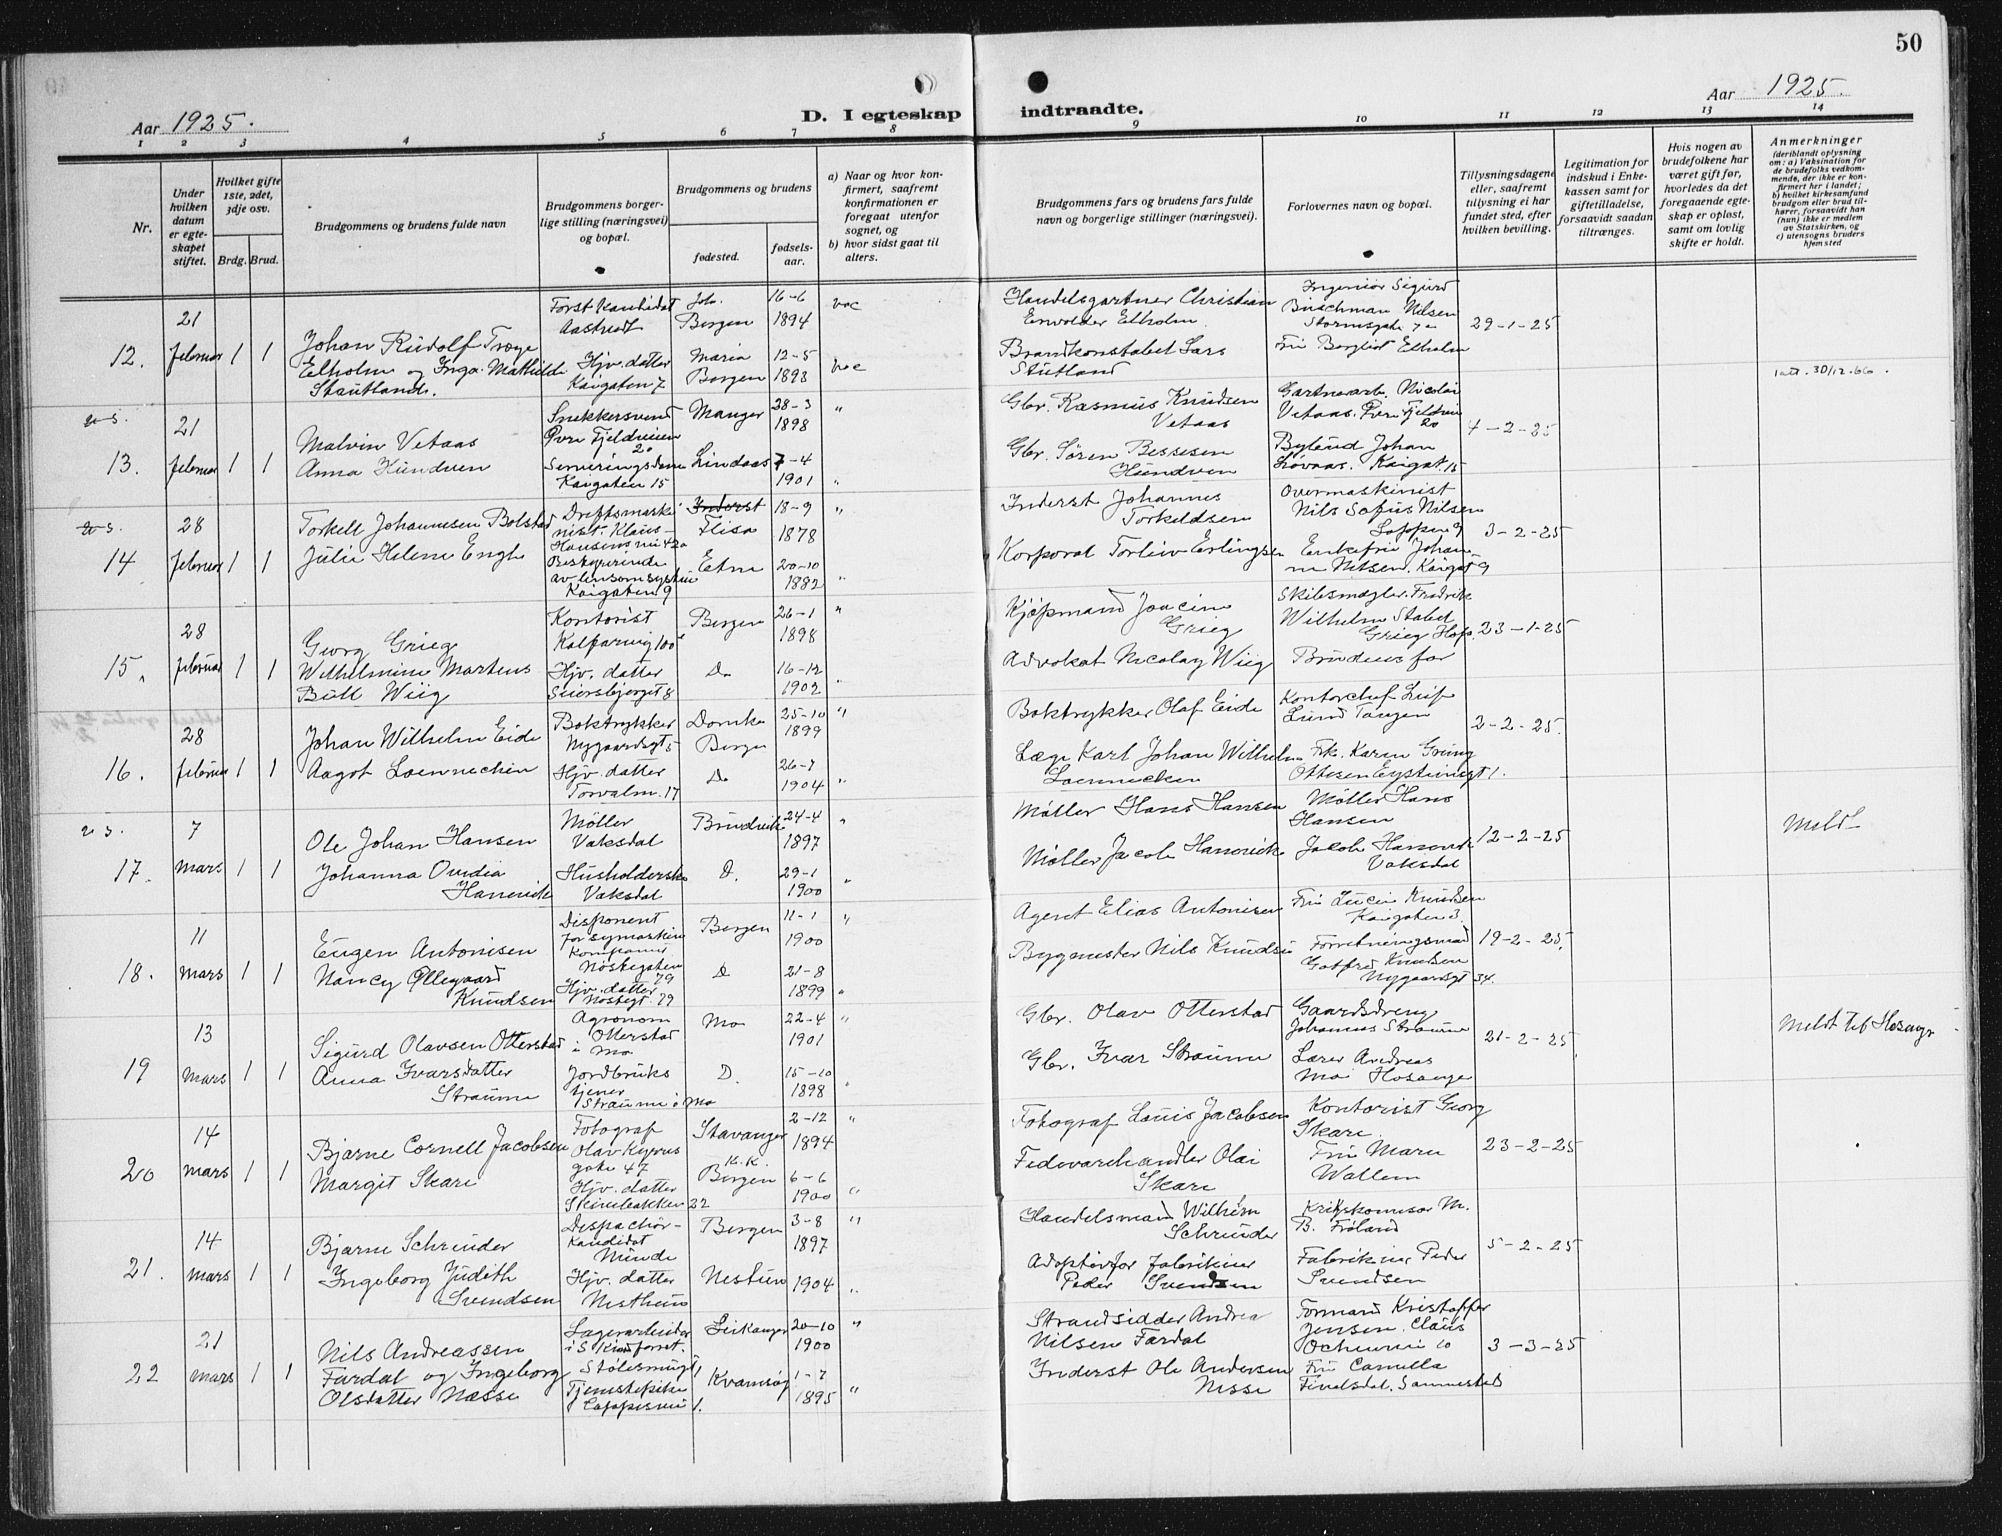 50
Aar 1925.
D. I egteskap indtraadte.
Aar 1925.
1 2 3 4 5 6 7 8 9 10 11 12 13 14
Nr.
Under hvilken datum er egteskapet stiftet.
Hvilket gifte 1ste, 2det, 3dje osv.
Brdg. Brud.
Brudgommens og brudens fulde navn
Brudgommens borgerlige stilling (næringsvei) og bopæl.
Brudgommens og brudens
fødested.
fødselsaar.
a) Naar og hvor konfirmert, saafremt konfirmationen er foregaat utenfor sognet, og
b) hvor sidst gaat til alters.
Brudgommens fars og brudens fars fulde navn og borgerlige stillinger (næringsvei).
Forlovernes navn og bopæl.
Tillysningsdagene eller, saafremt tillysning ei har fundet sted, efter hvilken bevilling.
Legitimation for indskud i Enkekassen samt for giftetilladelse, forsaavidt saadan tiltrænges.
Hvis nogen av brudefolkene har været gift før, hvorledes da det foregaaende egteskap er opløst, samt om lovlig skifte er holdt.
Anmerkninger
(deriblandt oplysning om: a) Vaksination for de brudefolks vedkommende, der ikke er konfirmert her i landet; b) hvilket kirkesamfund brudgom eller brud tilhører, forsaavidt han (hun) ikke er medlem av Statskirken, og c) utensogns bruders hjemsted
12. 21 februar 1 1
Johan Rudolf Træge
Elholm og Inga Mathilde
Stautland.
Forstkandidat
Aastredt
Hjv. datter
Kaigaten 7
Joh. Bergen 16-6 1894
Maria Bergen 12-5 1893
Handelsgartner Christian
Enevolder Elholm
Brandkonstabel Lars
Stutland
Ingeniør Sigurd
Buschman Nilsen
Stormsgate 7
Fru Bergliot Elholm
29-1-25
30/12.66.
13. 21 februar 1 1
Malvin Vetaas
Anna Hundven
Snekkersvend
Øvre Fjeldveien
20
Serveringsdame
Kaigaten 15
Manger 28-3 1898 "
Lindaas 7-4 1901 "
Gbr. Rasmus Knudsen
Vetaas
Gbr. Søren Bessesen
Hundven
Gartnerarb. Nicolai
Vetaas. Øvre Fjeldvei
20
Bybud Johan
Løvaas. Kaigat 15
4-2-25
14 28 februar 1 1
Torkell Johannesen Bolstad
Julie Helene Engh
Driftsmaski
nist. Klaus
Hansens vei 42a
Bestyrerinde
Kaigaten 9
Flisa 18-9 1878 "
Etne 20-10 1882 "
Inderst Johannes
Torkeldsen
Korporal Torleiv Erlingsen
Overmaskinist
Nils Sofus Nilsen
Loppen 9
Enkefru Johan
ne Nilsen. Kaigat 9
3-2-25
15. 28 februar 1 1
Georg Grieg
Wilhelmine Martens
Bull Wiig
Kontorist
Kalfarvei 100
Hjv. datter
Seiersbjergt 8
Bergen 26-1 1898 "
Do 16-12 1902 "
Kjøpmand Joacim
Grieg
Advokat Nicolay Wiig
Skibsmægler Fredrik
Wilhelm Stabel
Grieg Hop.
Brudens far
23-1-25
16. 28 februar 1 1
Johan Wilhelm Eide
Aagot Loennechen
Boktrykker
Nygaardsgt 5
Hjv. datter
Torvalm. 17
Domke
Bergen 25-10 1899 "
Do 26-7 1904 "
Boktrykker Olaf Eide
Læge Karl Johan Wilhelm
Loennecken
Kontorchef Leif
Lund Tangen
Frk. Karen Grung
Ottesen Eysteinsgt 1.
2-2-25.
17. 7 mars 1 1
Ole Johan Hansen
Johanna Ovidia
Hanevik
Møller
Vaksdal
Husholderske
Vaksdal
Bruvik 24-4 1897 "
D. 29-1 1900 "
Møller Hans Hansen
Møller Jacob Hanevik
Møller Hans
Hansen
Jacob Hanevik
Vaksdal
12-2-25
Meldt
18. 11 mars 1 1
Eugen Antonisen
Nancy Øllegaard
Knudsen
Disponent
for symaskin
kompani
Nøstegaten
79
Hjv. datter
Nøstegt. 79
Bergen 11-1 1900 "
D 21-8 1899 "
Agent Elias Antonisen
Bygmester Nils Knudsen
Fru Lucie Knudsen
Kaigaten 3.
Forretningsmand
Gotfred Knudsen
Nygaardsgt 34.
19-2-25.
19 13 mars 1 1
Sigurd Olavsen Otterstad
Anna Ivarsdatter
Straume
Agronom
Otterstad
i Mo
Jordbruks
tjener
Straume i Mo
Mo 22-4 1901 "
D. 15-10 1898 "
Gbr. Olav Otterstad
Gbr. Ivar Straume
Gaardsdreng
Johannes Straume
Lærer Andreas
Mo Hosanger
21-2-25.
Meldt til Hosangr
20 14 mars 1 1
Bjarne Cornell Jacobsen
Margit Skare
Fotograf
Olav Kyrres
gate 47
Hjv. datter
Skivebakken 22
Stavanger 2-12 1894 "
K.K. Bergen 6-6 1900 "
Fotograf Louis Jacobsen
Fedevarehandler Olai
Skare
Kontorist Georg
Skare
Fru Marie
Wallem
23-2-25
21. 14 mars 1 1
Bjarne Schreuder
Ingeborg Judith
Svendsen
Despachør-
kandidat
Minde
Hjv. datter
Nesttun
Bergen 3-8 1897 "
Nestun 1904 "
Handelsmand Wilhelm
Schreuder
Adoptivfar Fabrikeier
Peder Svendsen
Krigskomisær M.
B. Frøland
Fabrikeier Peder
Svendsen
5-2-25
22 21 mars 1 1
Nils Andreassen
Fardal og Ingeborg
Olsdatter Næsse
Lagerarbeider
Stølesmugt 1
Tjenestepike
Leikanger 20-10 1900 "
Kvamsøy 1-7 1895 "
Strandsidder Andrea
Nilsen Fardal
Inderst Ole Andersen
Nesse
Formand Kristoffer
Jensen. Claus
Ochsvei 10
Fru Camilla
Finalsdal. Sammested
3-3-25